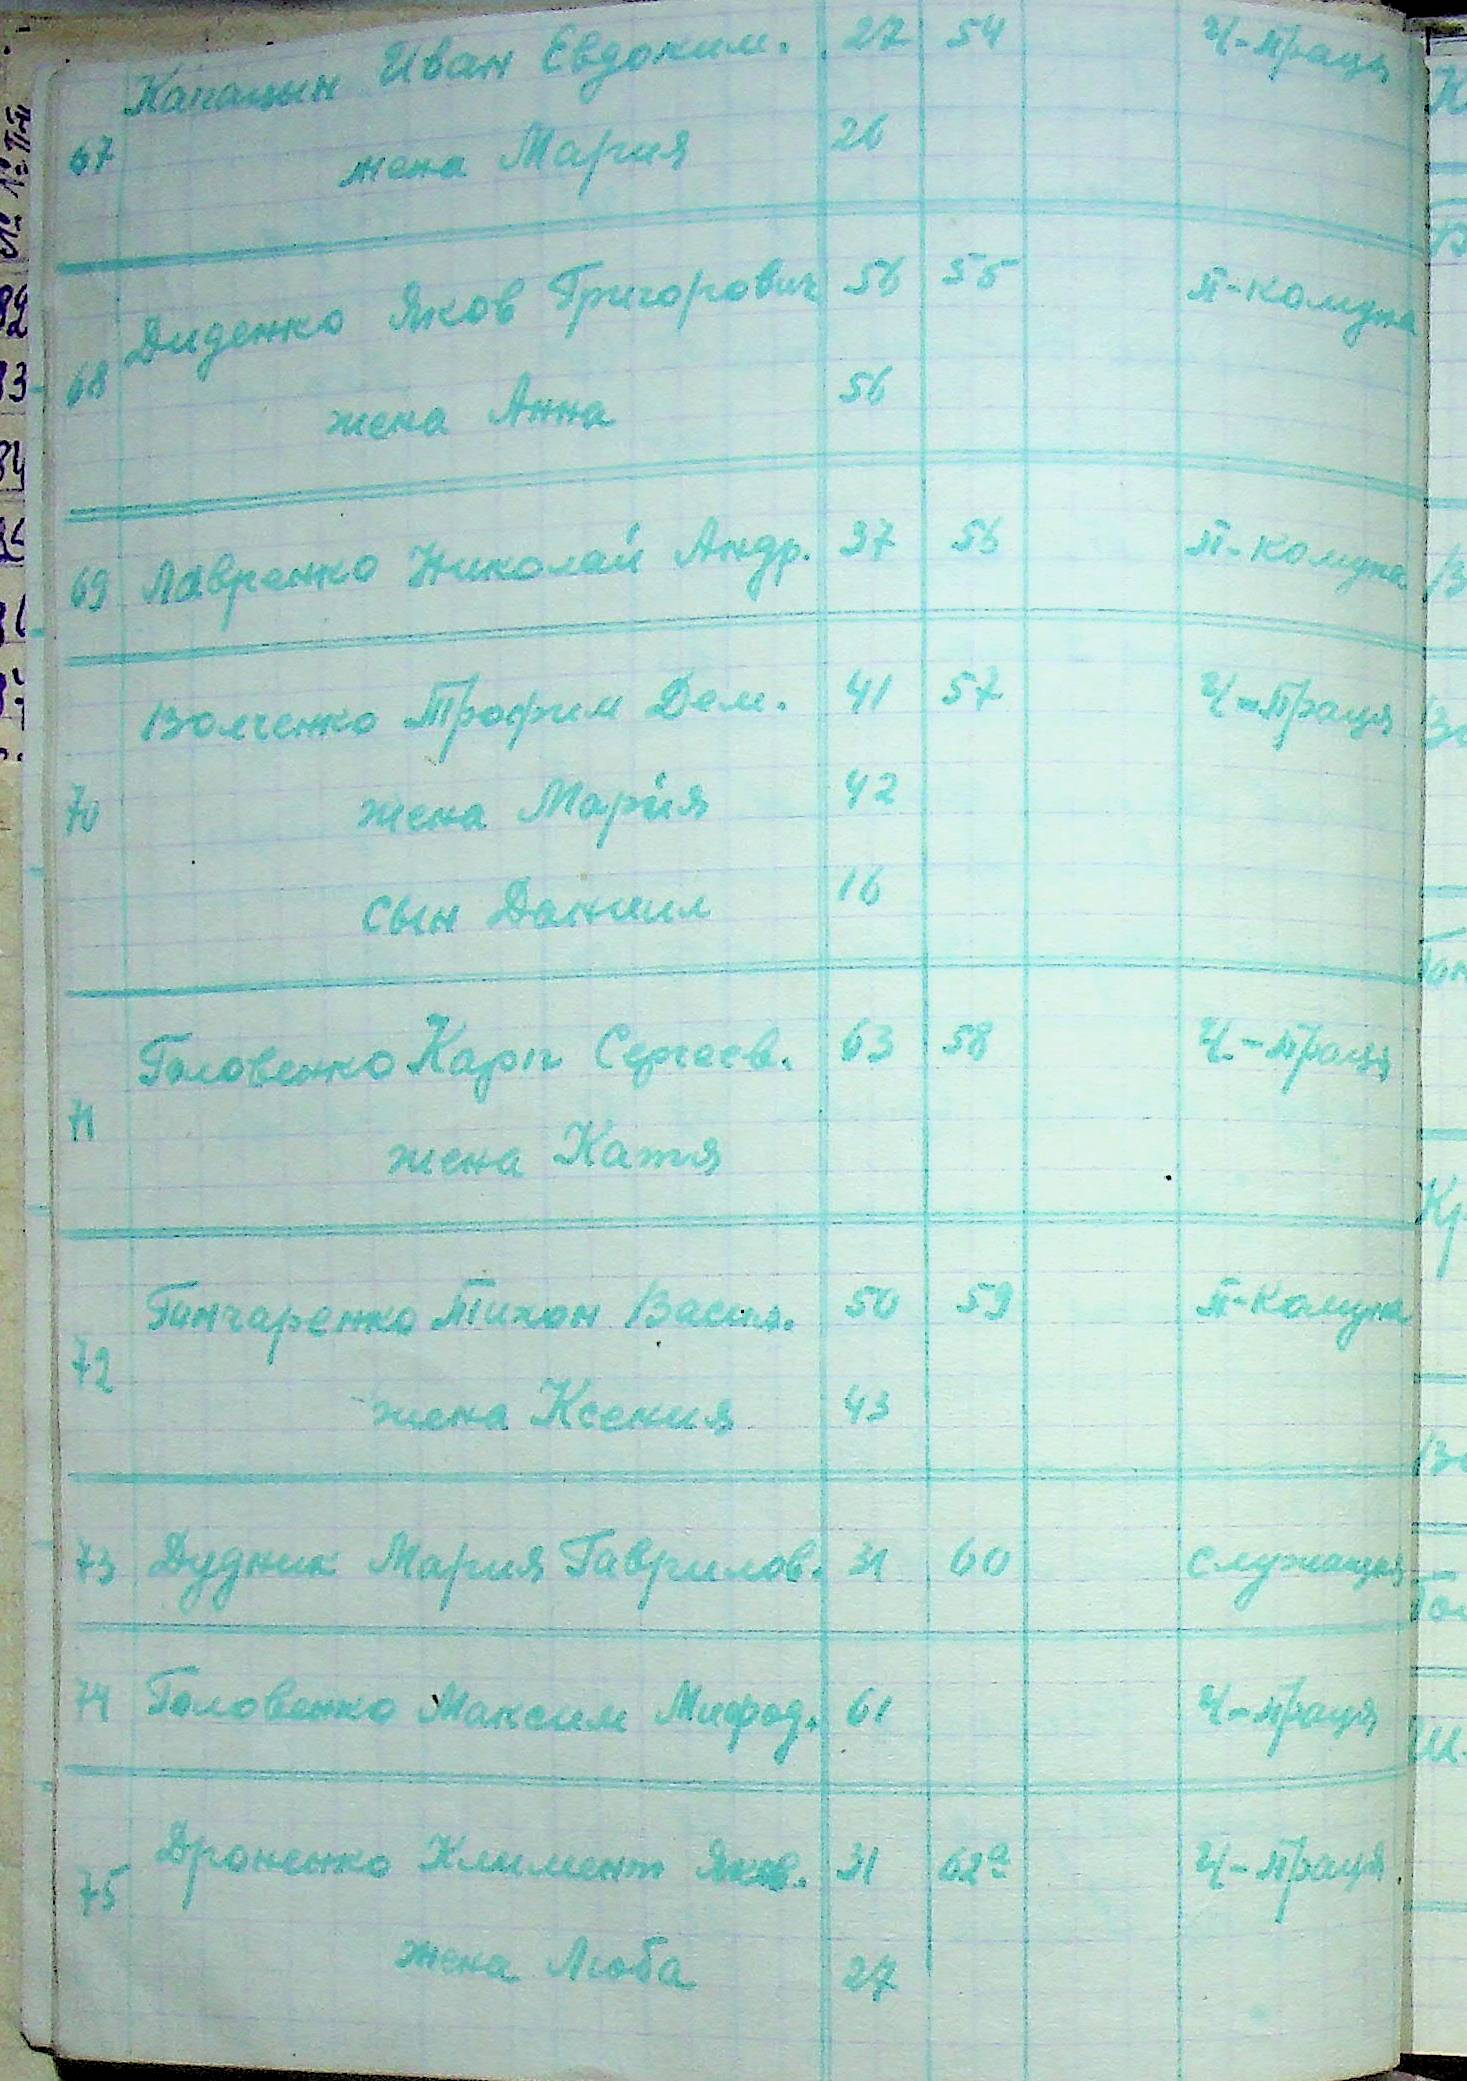 Капацын Иван Евдоким. 27 54 Ч-Праця
67 жена Мария 26
Диденко Яков Григорович 56 55 П-комуна
68 жена Анна 56
69 Лавренко Николай Андр. 37 56 П-комуна
Волченко Трофим Дем. 41 57 Ч-Праця
70 жена Мария 42
сын Даниил 16
Головенко Карп Сергеев. 63 58 Ч-Праця
71 жена Катя
Гончаренко Тихон Васил. 50 59 П-Комуна
72 жена Ксения 43
73 Дудник Мария Гаврилов. 31 60 служащая
74 Головенко Максим Мифод. 61 Ч-Праця
Дроненко Климент Яков. 31 62а Ч-Праця
75 жена Люба 27